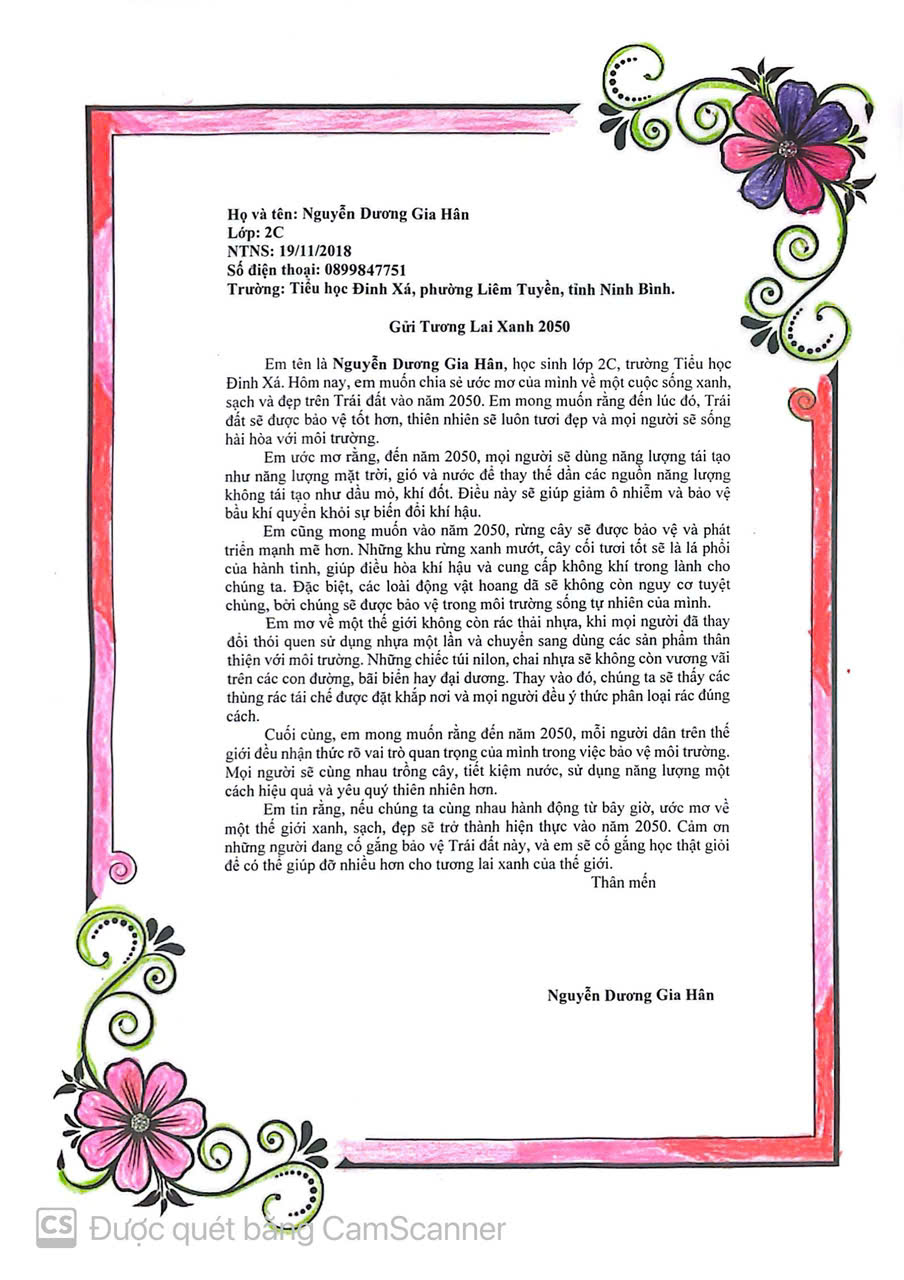 Họ và tên: Nguyễn Dương Gia Hân
Lớp: 2C
NTNS: 19/11/2018
Số điện thoại: 0899847751
Trường: Tiểu học Đinh Xá, phường Liêm Tuyền, tỉnh Ninh Bình.
Gửi Tương Lai Xanh 2050
Em tên là Nguyễn Dương Gia Hân, học sinh lớp 2C, trường Tiểu học
Đinh Xá. Hôm nay, em muốn chia sẻ ước mơ của mình về một cuộc sống xanh,
sạch và đẹp trên Trái đất vào năm 2050. Em mong muốn rằng đến lúc đó, Trái
đất sẽ được bảo vệ tốt hơn, thiên nhiên sẽ luôn tươi đẹp và mọi người sẽ sống
hài hòa với môi trường.
Em ước mơ rằng, đến năm 2050, mọi người sẽ dùng năng lượng tái tạo
như năng lượng mặt trời, gió và nước để thay thế dần các nguồn năng lượng
không tái tạo như dầu mỏ, khí đốt. Điều này sẽ giúp giảm ô nhiễm và bảo vệ
bầu khí quyển khỏi sự biến đổi khí hậu.
Em cũng mong muốn vào năm 2050, rừng cây sẽ được bảo vệ và phát
triển mạnh mẽ hơn. Những khu rừng xanh mướt, cây cối tươi tốt sẽ là lá phổi
của hành tinh, giúp điều hòa khí hậu và cung cấp không khí trong lành cho
chúng ta. Đặc biệt, các loài động vật hoang dã sẽ không còn nguy cơ tuyệt
chủng, bởi chúng sẽ được bảo vệ trong môi trường sống tự nhiên của mình.
Em mơ về một thế giới không còn rác thải nhựa, khi mọi người đã thay
đổi thói quen sử dụng nhựa một lần và chuyển sang dùng các sản phẩm thân
thiện với môi trường. Những chiếc túi nilon, chai nhựa sẽ không còn vương vãi
trên các con đường, bãi biển hay đại dương. Thay vào đó, chúng ta sẽ thấy các
thùng rác tái chế được đặt khắp nơi và mọi người đều ý thức phân loại rác đúng
cách.
Cuối cùng, em mong muốn rằng đến năm 2050, mỗi người dân trên thế
giới đều nhận thức rõ vai trò quan trọng của mình trong việc bảo vệ môi trường.
Mọi người sẽ cùng nhau trồng cây, tiết kiệm nước, sử dụng năng lượng một
cách hiệu quả và yêu quý thiên nhiên hơn.
Em tin rằng, nếu chúng ta cùng nhau hành động từ bây giờ, ước mơ về
một thế giới xanh, sạch, đẹp sẽ trở thành hiện thực vào năm 2050. Cảm ơn
những người đang cố gắng bảo vệ Trái đất này, và em sẽ cố gắng học thật giỏi
để có thể giúp đỡ nhiều hơn cho tương lai xanh của thế giới.
Thân mến
Nguyễn Dương Gia Hân
CS Được quét bằng CamScanner